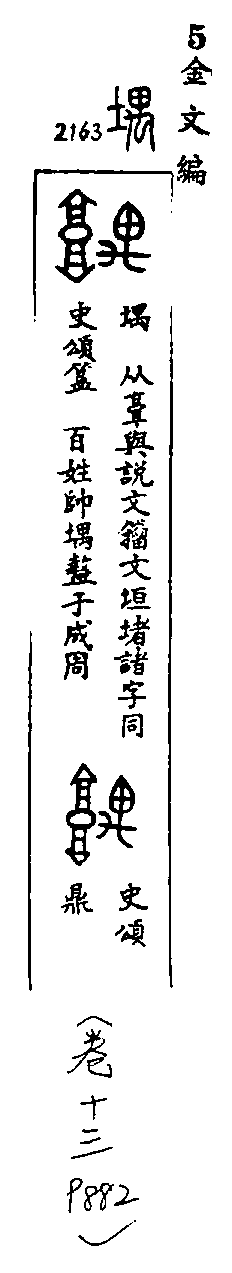 5金文編
堣
2163
堣 从𩫖與說文籀文垣堵諸字同
史頌簋 百姓帥堣盩于成周
史頌
鼎
(卷十三
P882)